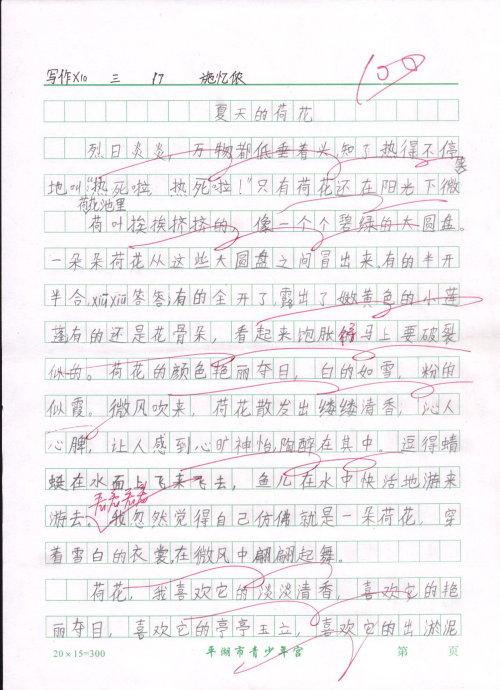 写作X10 三 17 施忆侬
100
夏天的荷花
烈日炎炎，万物都低垂着头，知了热得不停
地叫：“热死啦，热死啦！”只有荷花还在阳光下微笑
荷花池里
荷叶挨挨挤挤的，像一个个碧绿的大圆盘。
一朵朵荷花从这些大圆盘之间冒出来，有的半开
半合，xiūxiū答答；有的全开了，露出了嫩黄色的小莲
蓬有的还是花骨朵，看起来饱胀得马上要破裂
似的。荷花的颜色艳丽夺目，白的如雪，粉的
似霞。微风吹来，荷花散发出缕缕清香，沁人
心脾，让人感到心旷神怡，陶醉在其中。逗得蜻
蜓在水面上飞来飞去，鱼儿在水中快活地游来
游去。看看看看我忽然觉得自己仿佛就是一朵荷花，穿
着雪白的衣裳，在微风中翩翩起舞。
荷花，我喜欢它的淡淡清香，喜欢它的艳
丽夺目，喜欢它的亭亭玉立，喜欢它的出淤泥
20×15=300 平湖市青少年宫 第 页